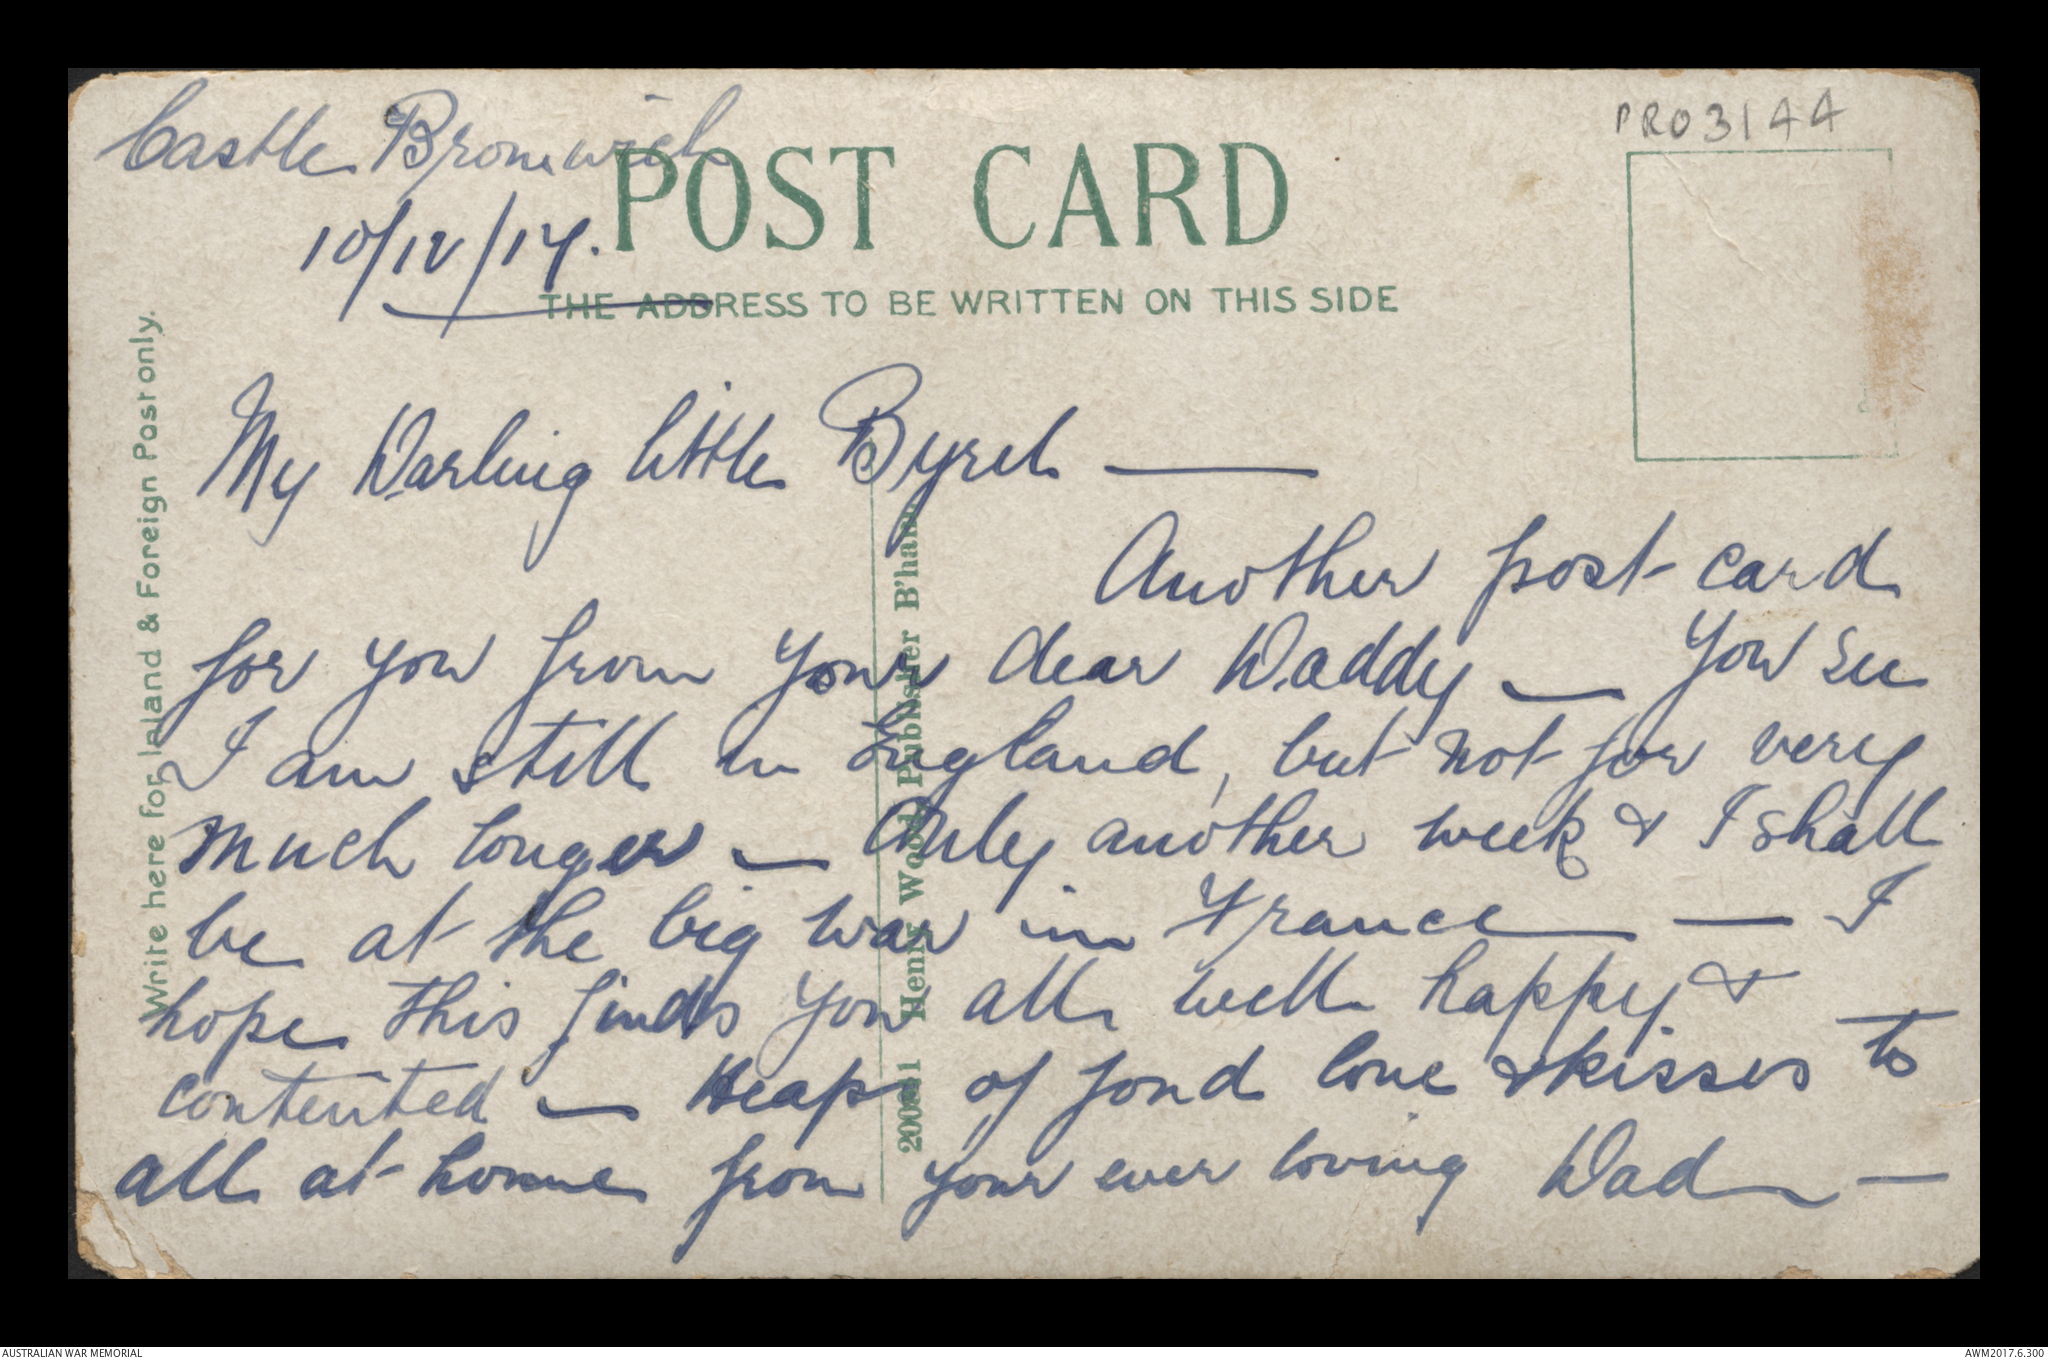 Castle Bromwich
10/12/17.
PRO3144
POST CARD
THE ADDRESS TO BE WRITTEN ON THIS SIDE
Write here for Inland & Foreign Post only.
200841 Henry Wood, Publisher B'ham
My Darling little Byrel —
Another post-card
for you from your dear Daddy — You see
I am still in England, but not for very
much longer — Only another week & I shall
be at the big war in France — I
hope this finds you all well happy &
contented — Heaps of fond love & kisses to
all at home from your ever loving Dad —
AUSTRALIAN WAR MEMORIAL
AWM2017.6.300